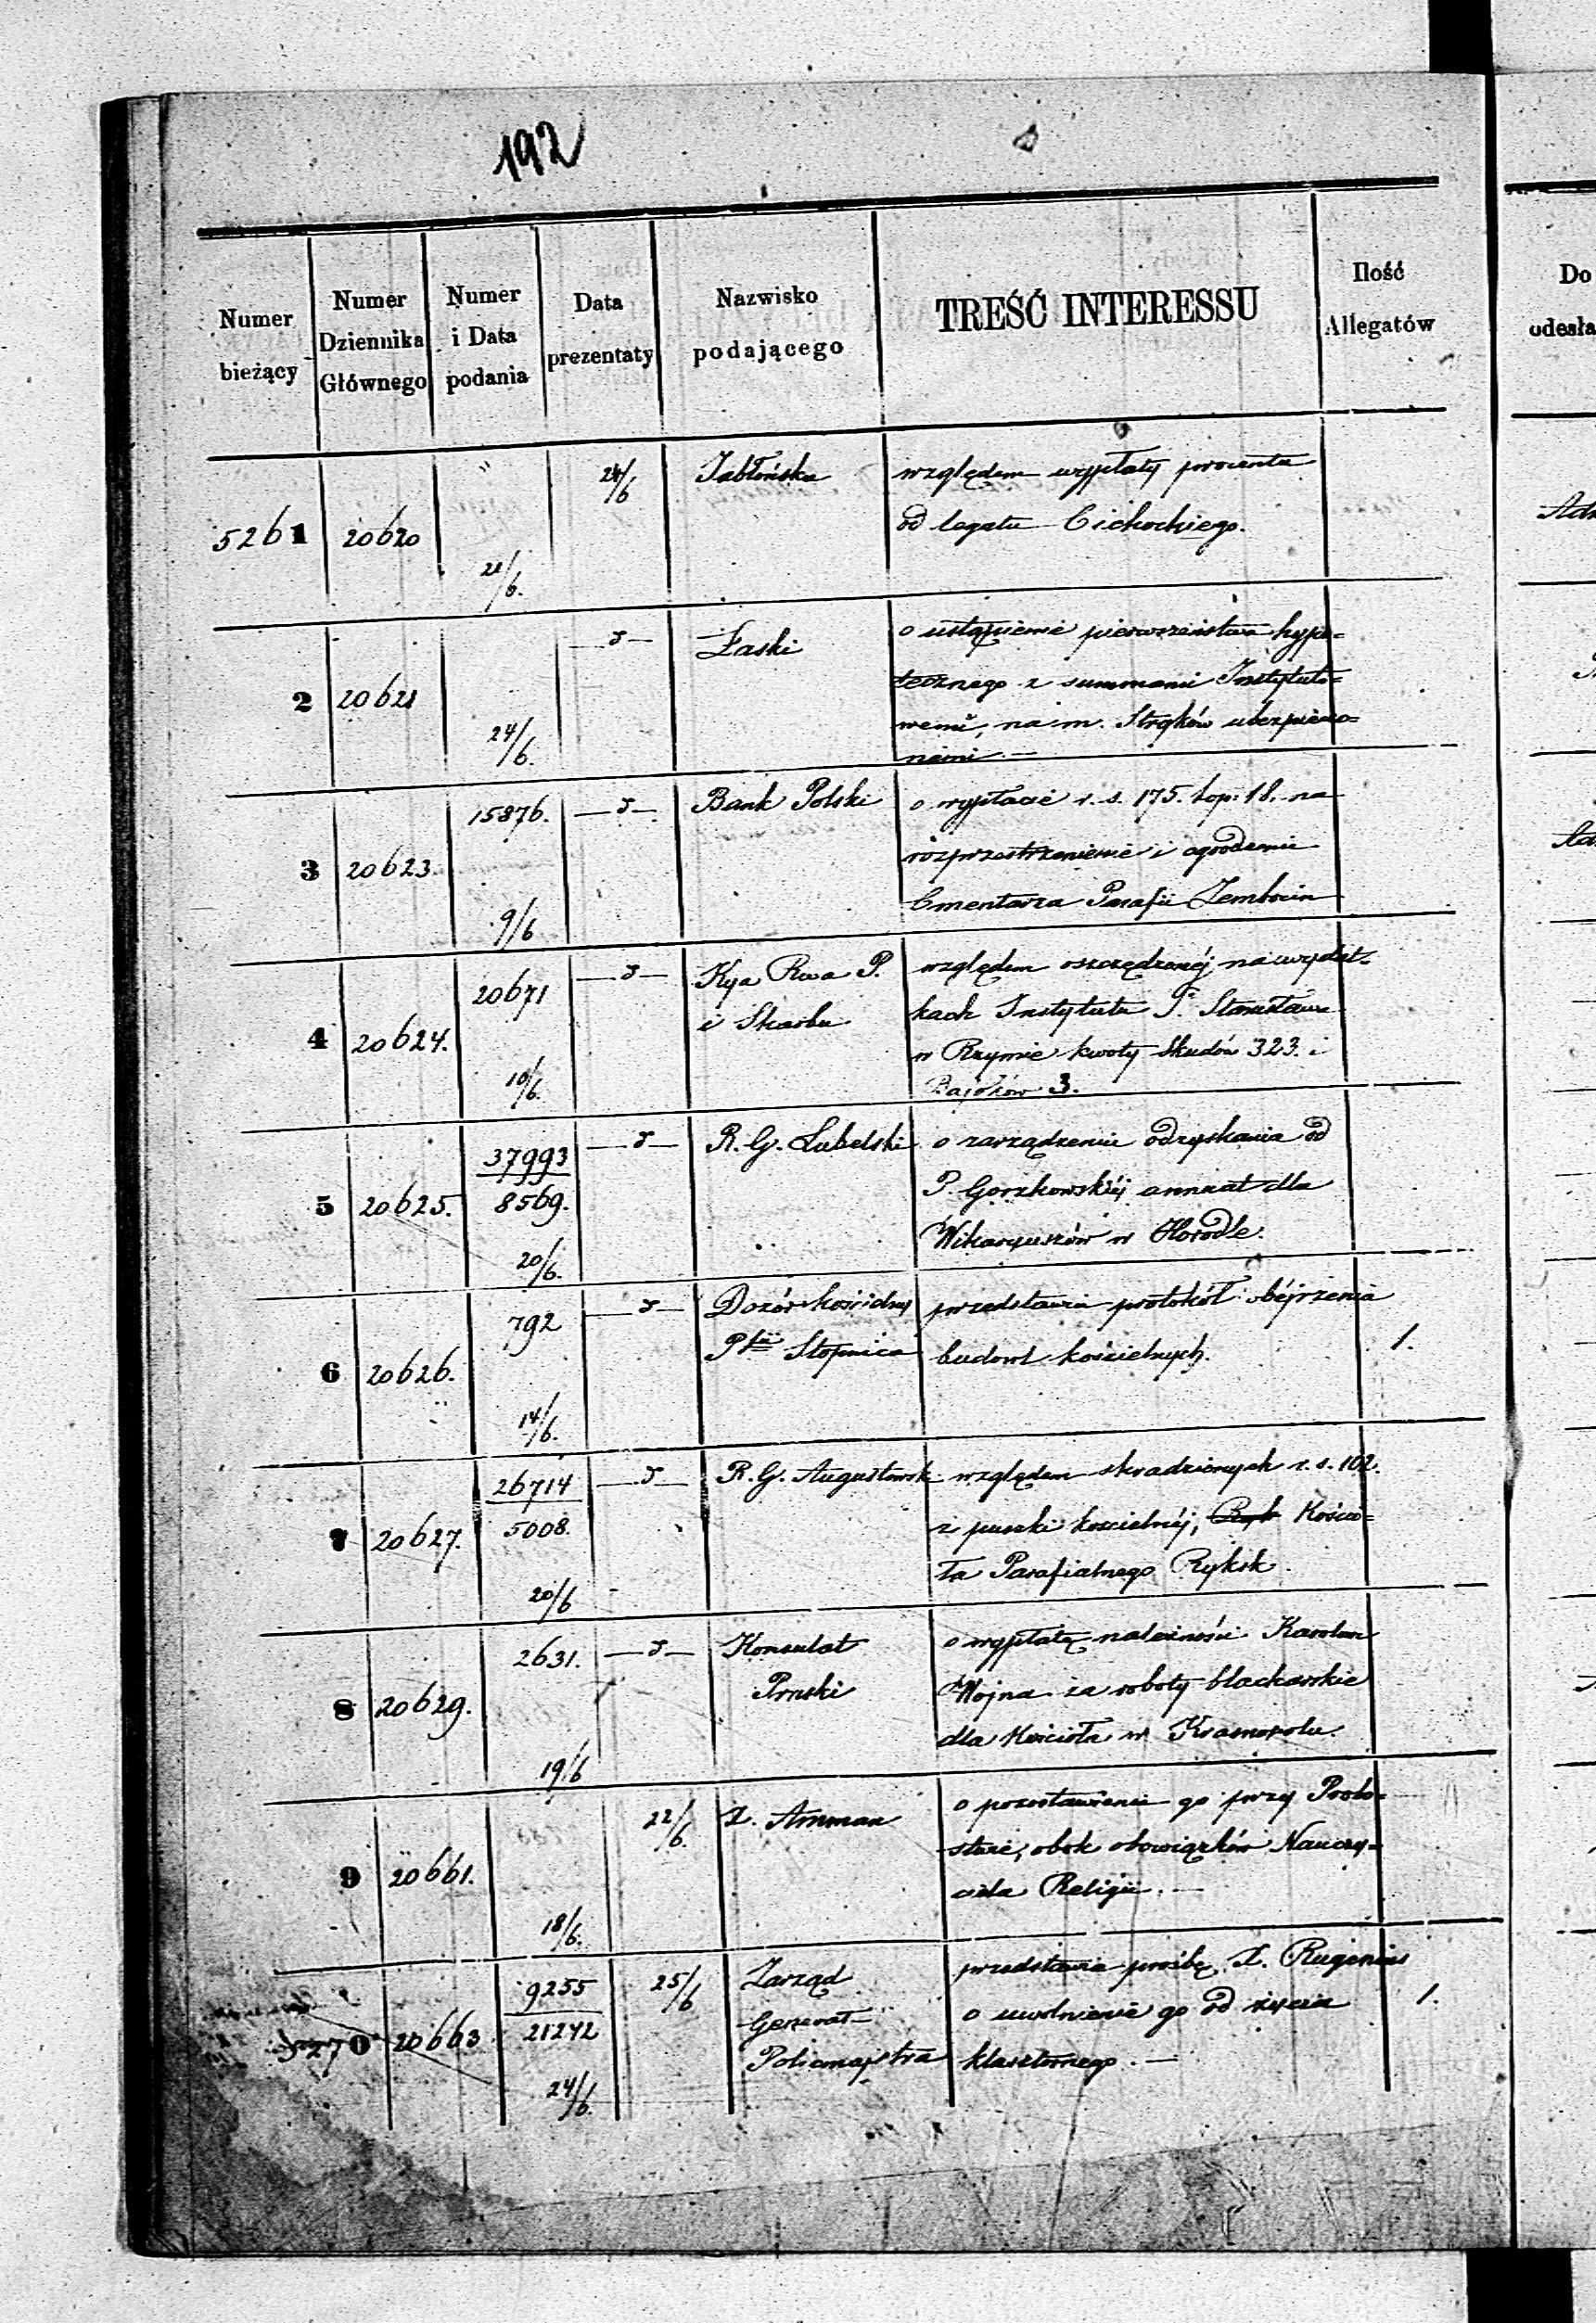 192
Numer bieżący | Numer Dziennika Głównego | Numer i Data podania | Data prezentaty | Nazwisko podającego | TREŚĆ INTERESSU | Ilość Allegatów | Do
odesła
5261 | 20620 | 21/6. | 24/6 | Jabłońska | względem wypłaty procentu
od legatu Cichockiego.
2 | 20621 | 24/6. | Łaski | o ustąpienie pierwszeństwa hypo=
tecznego z summami Instytuto=
wemi, na m. Stryków ubezpieczo=
nemi.
3 | 20623. | 15876. 9/6 | Bank Polski | o wypłacie r. s. 175. kop. 18. na
rozprzestrzenienie i ogrodzenie
Cmentarza Parafii Zembocin
4 | 20624. | 20671 10/6. | Kya Rwa P.
i Skarbu | względem oszczędzonéj na wydat=
kach Instytutu Sw. Stanisława
w Rzymie kwoty Skudów 323. i
Bajoków 3.
5 | 20625. | 37993 8569. 20/6. | R. G. Lubelski | o zarządzenie odzyskania od
P. Gorzkowskiéj annuat dla
Wikaryuszów w Horodle.
6 | 20626. | 792 14/6. | Dozór kościelny
Pfii Stopnica | przedstawia protokół obéjrzenia | 1.
budowl kościelnych.
7 | 20627. | 26714 5008. 20/6 | R. G. Augustowsk | względem skradzionych r. s. 102.
z puszki kościelnéj, Kościo=
ła Parafialnego Ryksk.
8 | 20629. | 2631. 19/6 | Konsulat
Pruski | o wypłatę należności Karolowi
Wojna za roboty blacharskie
dla Kościoła w Krasnopolu.
9 | 20661. | 18/6. | 22/6. | X. Amman | o pozostawienie go przy Probo=
stwie, obok obowiązków Nauczy=
ciela Religii.
5270 | 20663 | 9255 21242 24/6. | 25/6 | Zarząd
Generał
Policmajstra | przedstawia prośbę X. Rugenius
o uwolnienie go od życia | 1.
klasztornego.